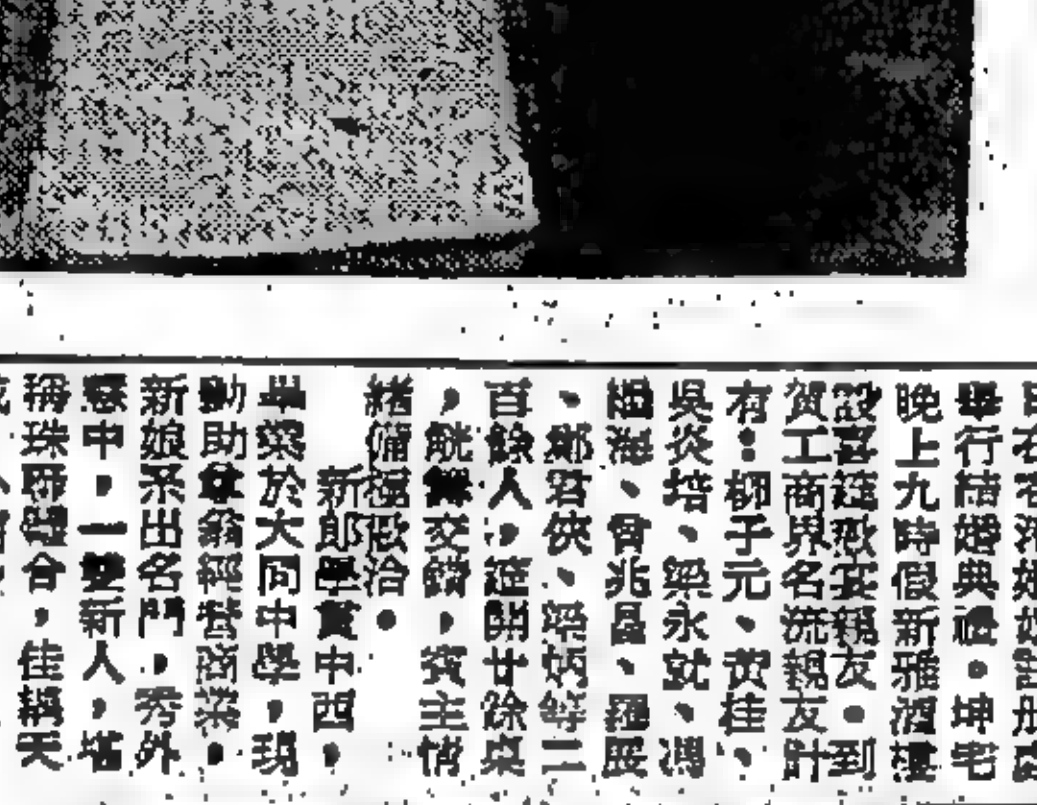 舉行結婚典禮。坤宅
晚上九時假新雅酒樓
設喜筵歡宴親友。到
賀工商界名流親友計
有:柳子元、黄佳、
吳炎培、梁永就、馮
海、兆晶、羅展
、鄭君俠、梁炳等二
百餘人,筵開廿餘桌
,觥籌交錯,賓主情
緒備極歡洽。
新郎學貫中西,
畢業於大同中學,現
助翁經營商業,
新娘系出名門,秀外
慧中,一雙新人,堪
稱珠聯璧合,佳耦天